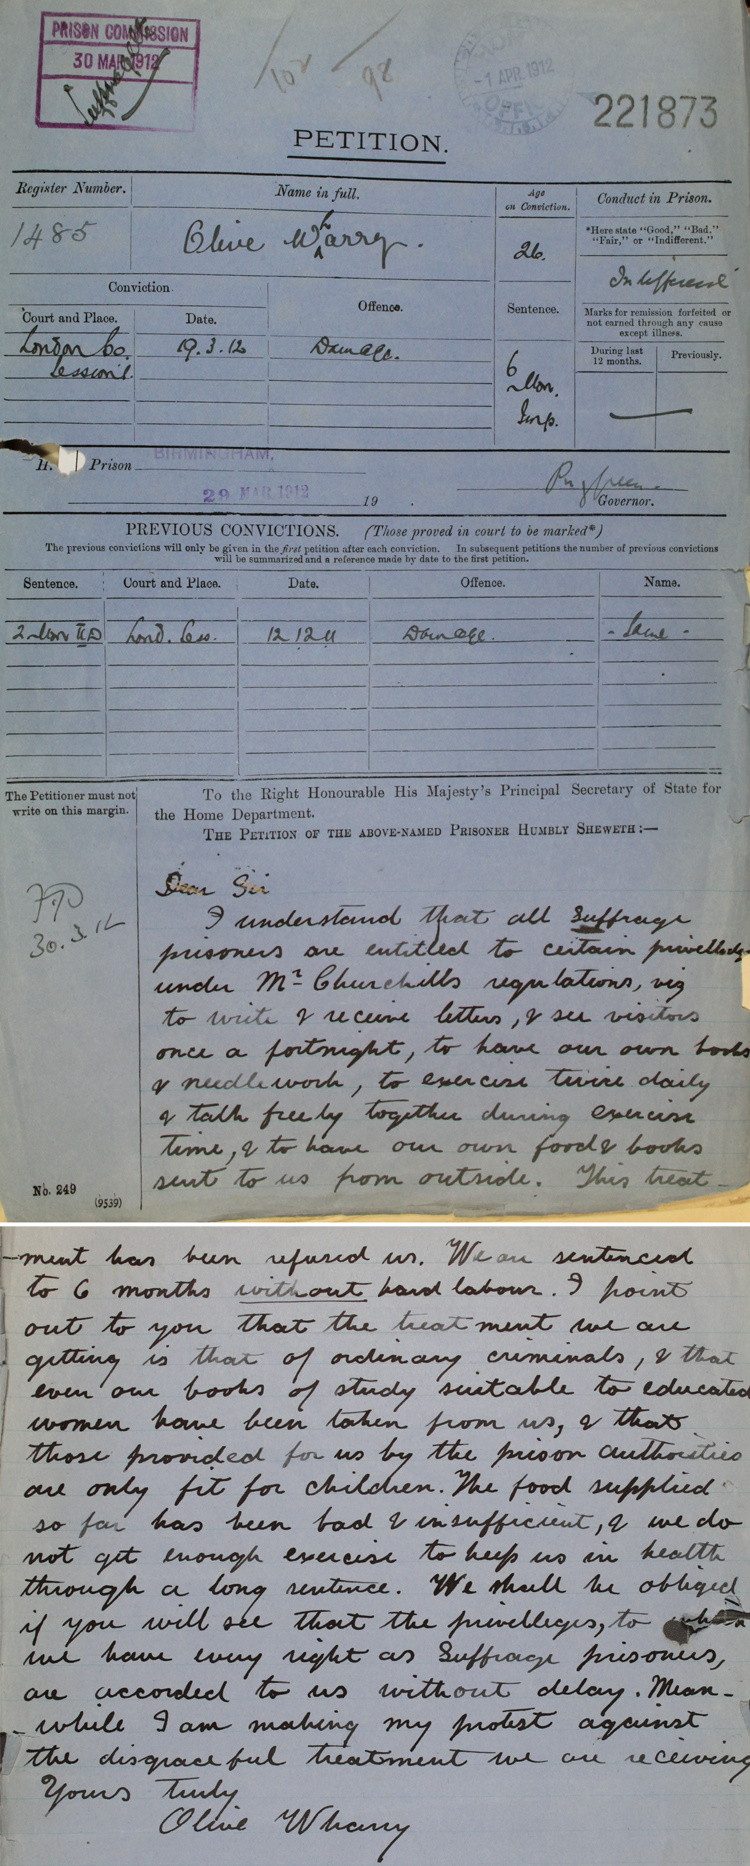 PRISON COMMISSION
30 MAR 1912
102
98
-1 APR. 1912
221873
PETITION.
Register Number.
Name in full.
Age
on Conviction.
Conduct in Prison.
1485
Olive Wharry.
26.
*Here state "Good," "Bad,"
"Fair," or "Indifferent."
Indifferent
Conviction
Offence.
Sentence.
Marks for remission forfeited or
not earned through any cause
except illness.
Court and Place.
Date.
During last
12 months.
Previously.
London Co.
Sessions.
19.3.12
Damage.
6
Mon.
Imp.
H. Prison
BIRMINGHAM.
29 MAR 1912
19 .
Governor.
PREVIOUS CONVICTIONS. (Those proved in court to be marked*)
The previous convictions will only be given in the first petition after each conviction. In subsequent petitions the number of previous convictions
will be summarized and a reference made by date to the first petition.
Sentence.
Court and Place.
Date.
Offence.
Name.
2 Mon II D
Lond. Sess.
12 12 11
Damage.
- Same -
The Petitioner must not
write on this margin.
To the Right Honourable His Majesty's Principal Secretary of State for
the Home Department.
THE PETITION OF THE ABOVE-NAMED PRISONER HUMBLY SHEWETH:—
30.3.12
Dear Sir
I understand that all Suffrage
prisoners are entitled to certain
under Mr Churchills regulations, viz
to write & receive letters, & see visitors
once a fortnight, to have our own books
& needlework, to exercise twice daily
& talk freely together during exercise
time, & to have our own food & books
sent to us from outside. This treat-
No. 249
(9539)
-ment has been refused us. We are sentenced
to 6 months without hard labour. I point
out to you that the treatment we are
getting is that of ordinary criminals, & that
even our books of study suitable to educated
women have been taken from us, & that
those provided for us by the prison authorities
are only fit for children. The food supplied
so far has been bad & insufficient, & we do
not get enough exercise to keep us in health
through a long sentence. We shall be obliged
if you will see that the privelleges, to which
we have every right as Suffrage prisoners,
are accorded to us without delay. Mean-
-while I am making my protest against
the disgraceful treatment we are receiving
Yours truly
Olive Wharry